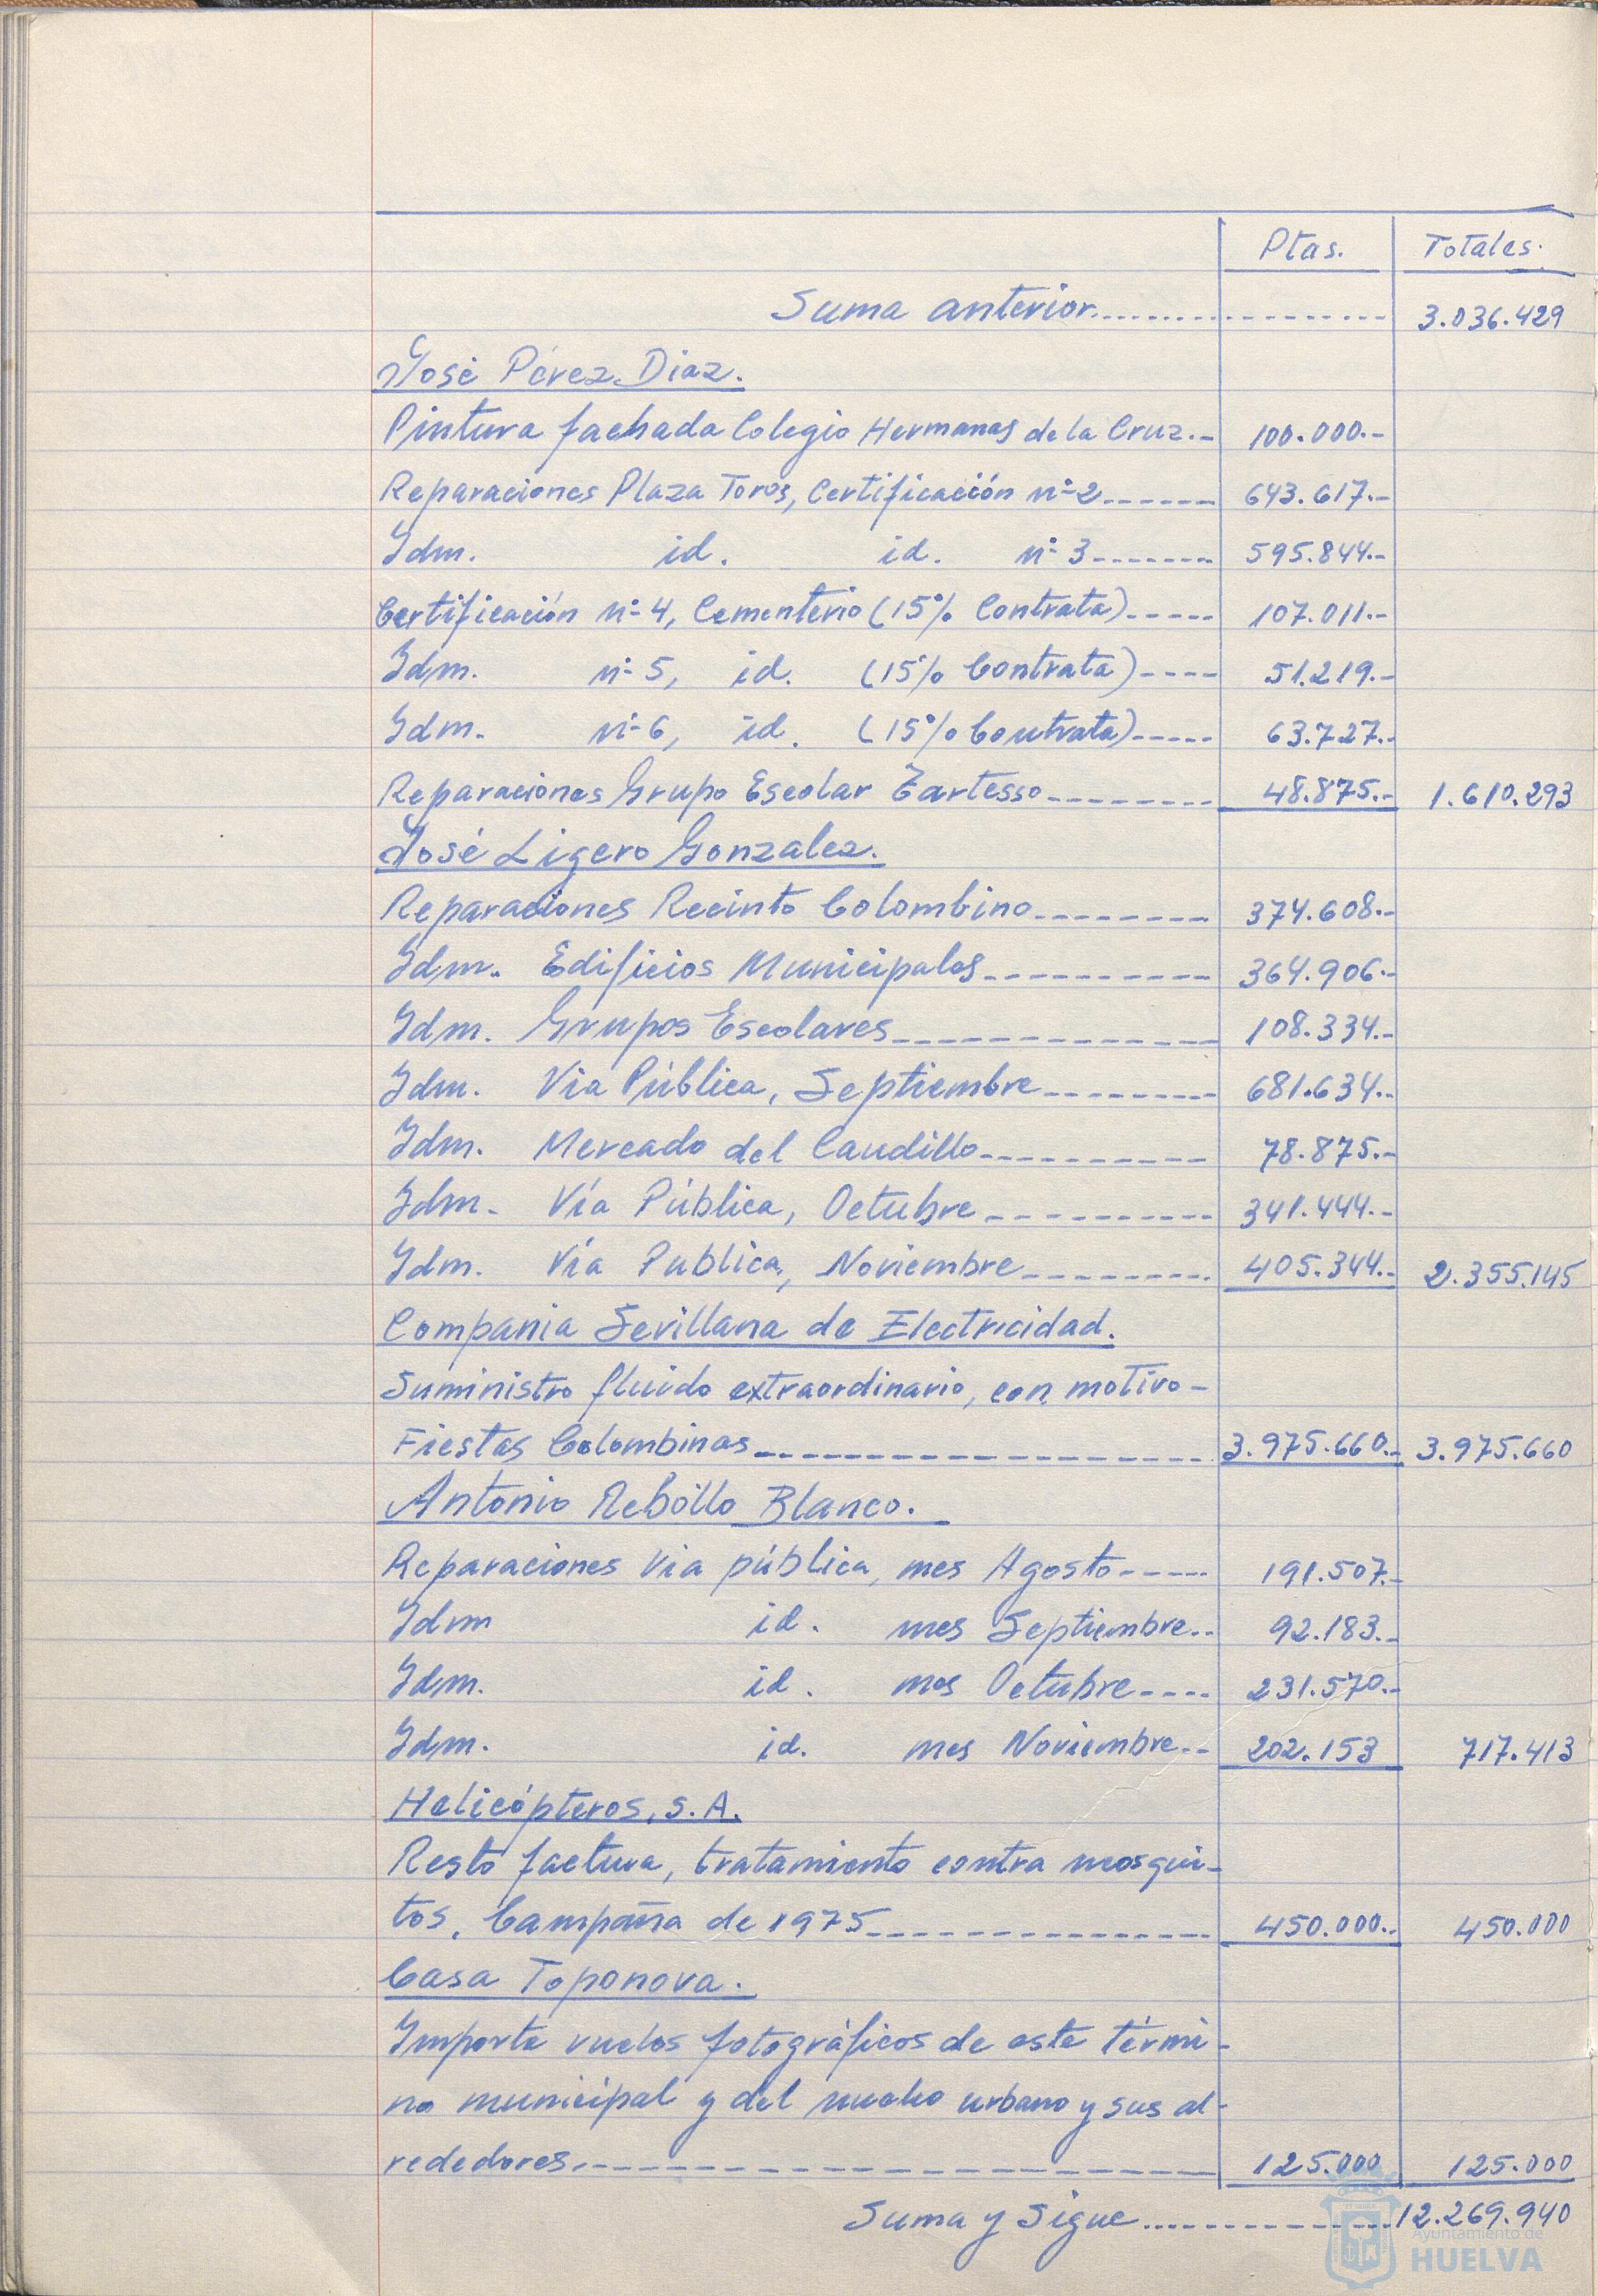 Ptas. Totales.
Suma anterior.................. 3.036.429
José Pérez Diaz.
Pintura fachada Colegio Hermanas de la Cruz.- 100.000.-
Reparaciones Plaza Toros, Certificación nº 2------ 643.617.-
Idm. id. id. nº 3------- 595.844.-
Certificación nº 4, Cementerio (15% Contrata)----- 107.011.-
Idm. nº 5, id. (15% Contrata)---- 51.219.-
Idm. nº 6, id. (15% Contrata)----- 63.727.-
Reparaciones Grupo Escolar Tartesso-------- 48.875.- 1.610.293
José Ligero Gonzalez.
Reparaciones Recinto Colombino-------- 374.608.-
Idm. Edificios Municipales---------- 364.906.-
Idm. Grupos Escolares------------- 108.334.-
Idm. Via Pública, Septiembre-------- 681.634.-
Idm. Mercado del Caudillo---------- 78.875.-
Idm. Vía Pública, Octubre---------- 341.444.-
Idm. Vía Publica, Noviembre-------- 405.344.- 2.355.145
Compania Sevillana de Electricidad.
Suministro fluido extraordinario, con motivo-
Fiestas Colombinas------------------ 3.975.660.- 3.975.660
Antonio Rebollo Blanco.
Reparaciones Via pública, mes Agosto----- 191.507.-
Idm id. mes Septiembre-- 92.183.-
Idm. id. mes Octubre---- 231.570.-
Idm. id. mes Noviembre-- 202.153 717.413
Helicópteros, S.A.
Resto factura, tratamiento contra mosqui-
tos, Campaña de 1975-------------- 450.000.- 450.000
Casa Toponova.
Importe vuelos fotográficos de este térmi-
no municipal y del nucleo urbano y sus al-
rededores.------------------ 125.000 125.000
Suma y Sigue.................. 12.269.940
Ayuntamiento de
HUELVA